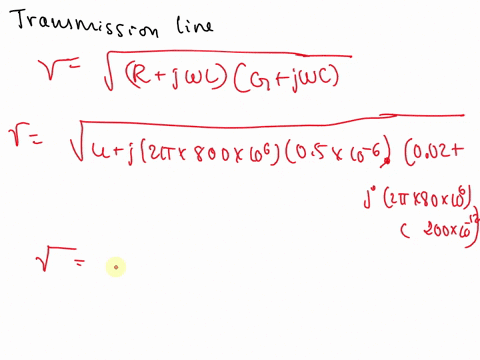 Transmission line
γ = √(R + jωL) (G + jωC)
γ = √4 + j(2π × 800 × 10⁶) (0.5 × 10⁻⁶) (0.02 +
j (2π × 80 × 10⁶)
( 200 × 10⁻¹²)
√ =